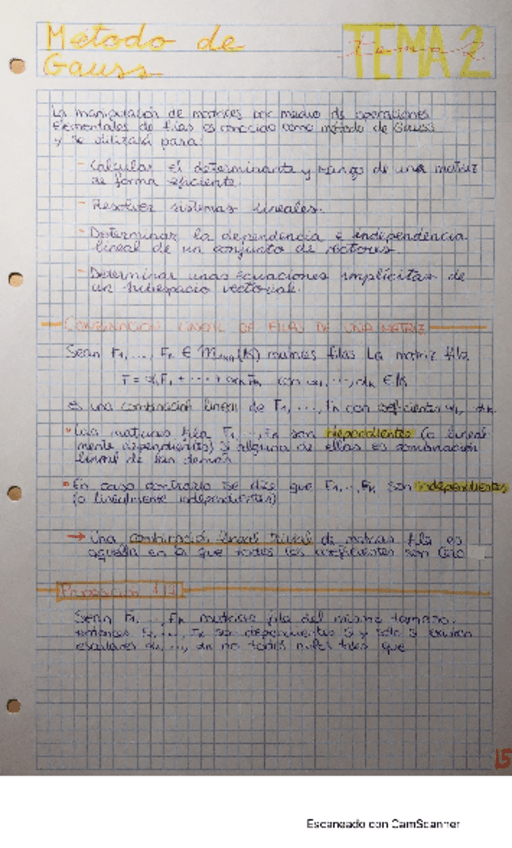 Metodo de
Gauss
TEMA 2
Tema 2
La manipulación de matrices por medio de operaciones
elementales de filas es conocido como método de Gauss
y se utilizará para:
- Calcular el determinante y rango de una matriz
de forma eficiente.
- Resolver sistemas lineales.
- Determinar la dependencia e independencia
lineal de un conjunto de vectores.
- Determinar unas ecuaciones implícitas de
un subespacio vectorial.
COMBINACION LINEAL DE FILAS DE UNA MATRIZ
Sean F1, ..., Fn ∈ (K) matrices filas La matriz fila
F = α1F1 + ... + αnFn con α1, ..., αn ∈ K
es una combinación lineal de F1, ..., Fn con coeficientes α1, αn.
• Las matrices fila F1, ..., Fn son dependientes (o lineal
mente dependientes) si alguna de ellas es combinación
lineal de las demás.
• En caso contrario se dice que F1, ..., Fn son independientes
(o linealmente independientes)
→ Una combinación lineal trivial de matrices fila es
aquella en la que todos los coeficientes son cero
Proposición
Sean F1, ..., Fn matrices fila del mismo tamaño.
entonces F1, ..., Fn son dependientes si y solo si existen
escalares α1, ..., αn no todos nulos tales que
15
Escaneado con CamScanner